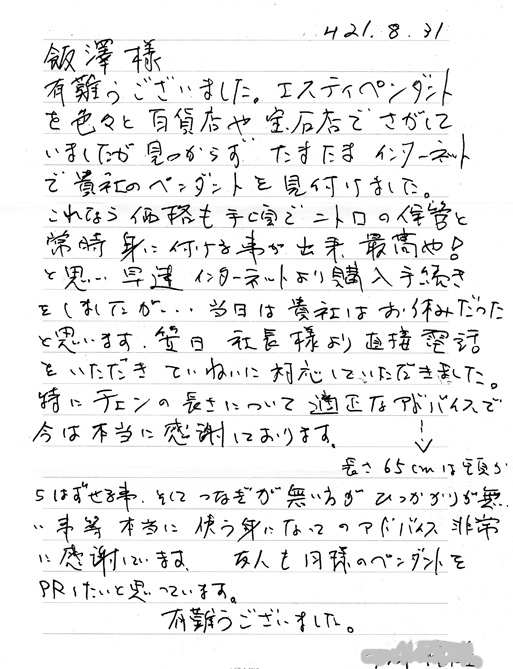 H21.8.31
飯澤様
有難うございました。エスティペンダント
を色々と百貨店や宝石店でさがして
いましたが見つからず たまたまインターネット
で貴社のペンダントを見付けました。
これなら価格も手頃でニトロの保管と
常時身に付ける事が出来 最高や!
と思い 早速インターネットより購入手続き
をしましたが・・・当日は貴社はお休みだった
と思います。翌日 社長様より直接電話
をいただき ていねいに対応していただきました。
特にチェンの長さについて適正なアドバイスで
今は本当に感謝しております。
長さ65cmは頭か
らはずせる事、そしてつなぎが無い方がひっかかりが無
い事等 本当に使う身になってのアドバイス非常
に感謝しています 友人も同様のペンダントを
PRしたいと思っています。
有難うございました。